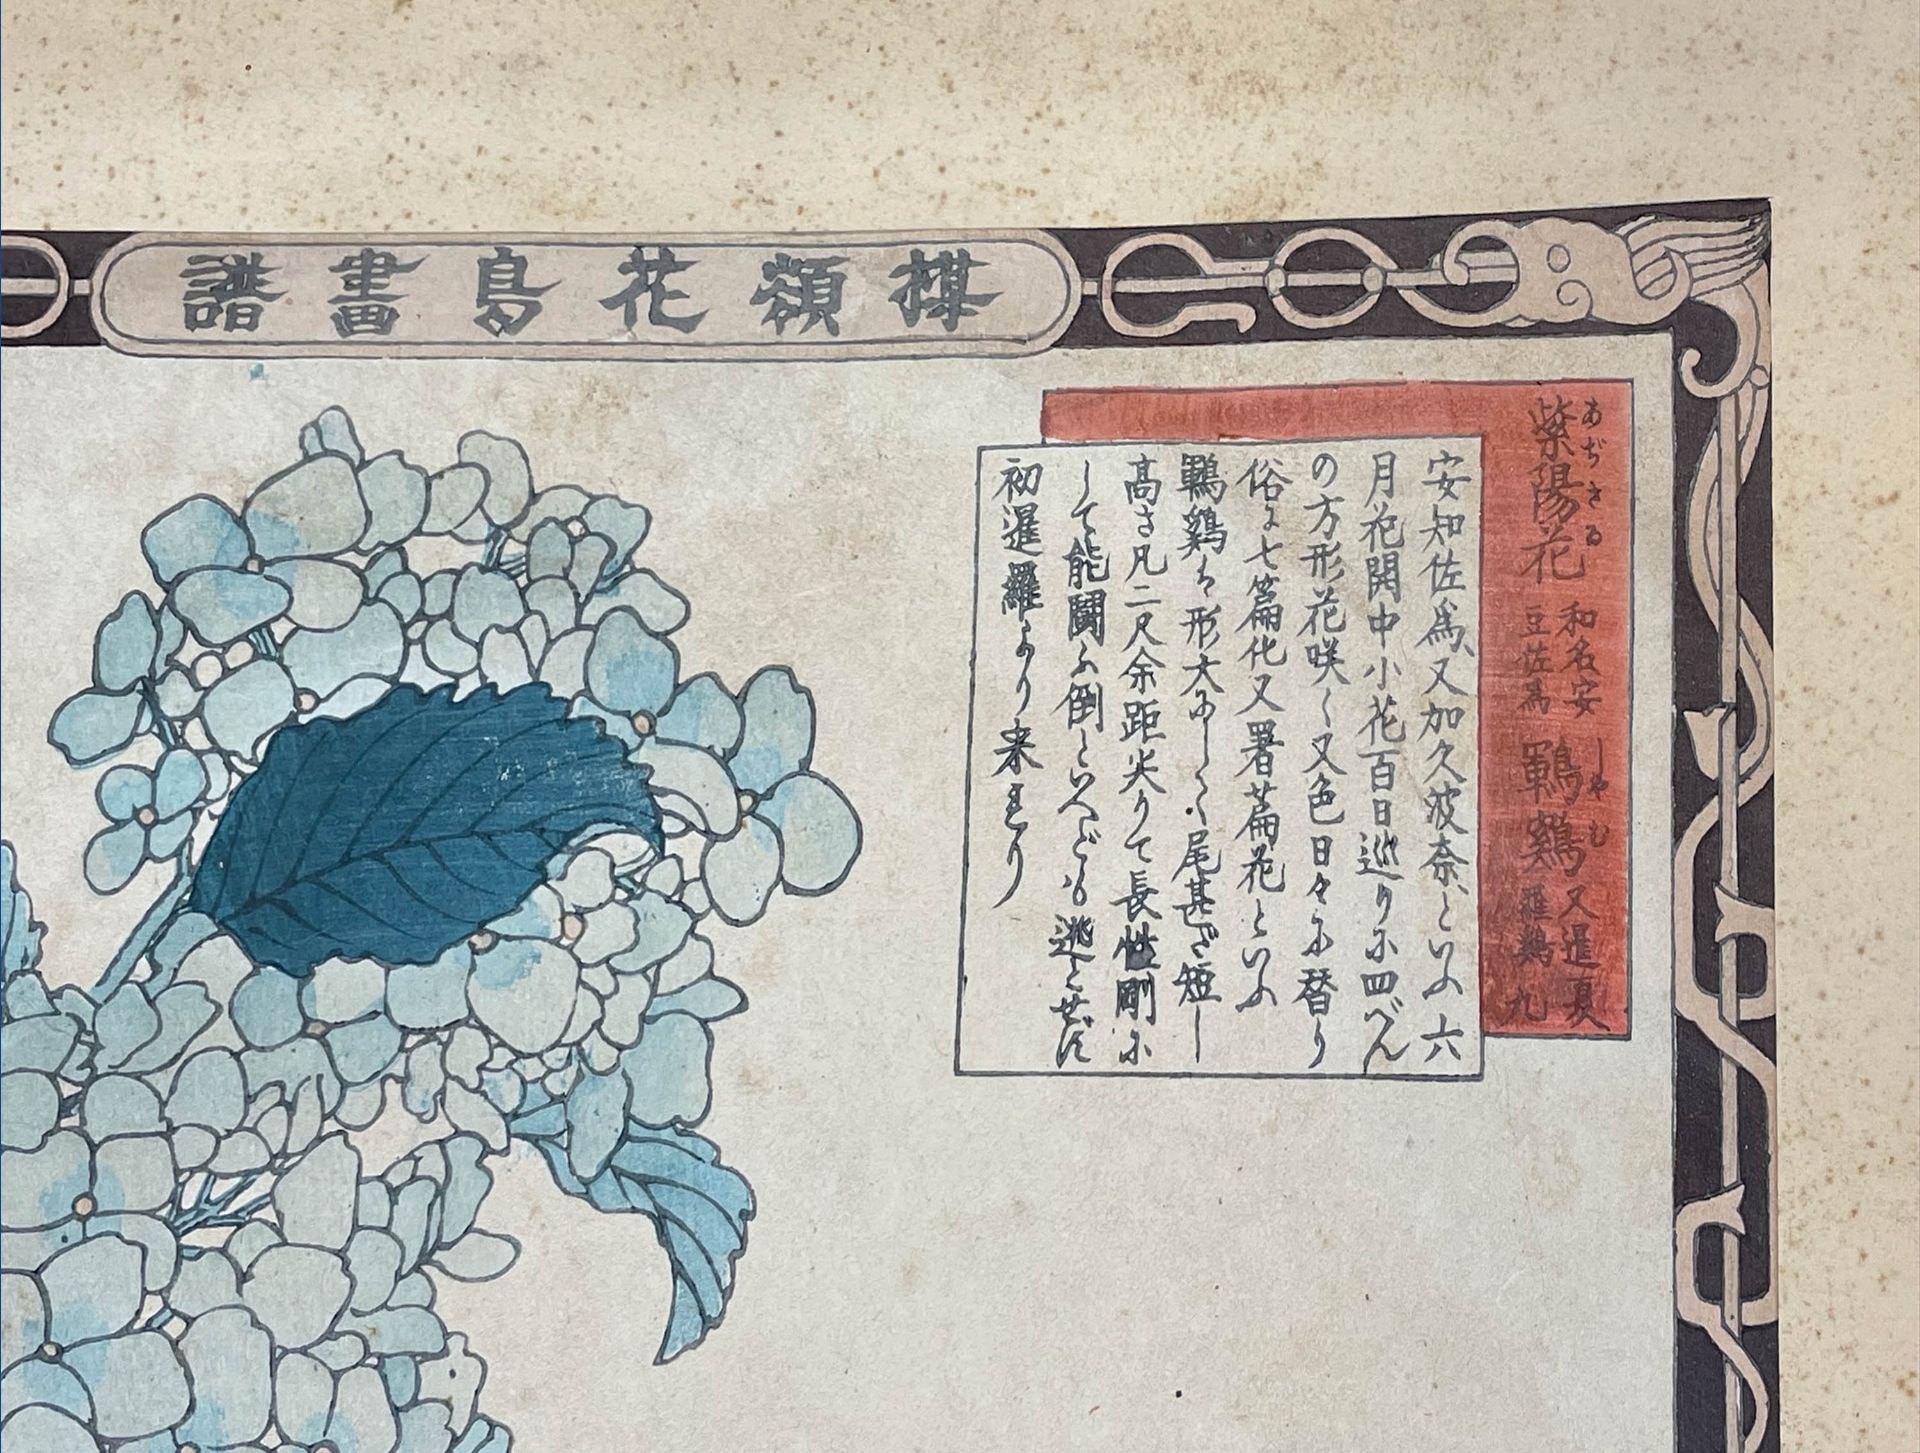 楳嶺花鳥畫譜
紫陽花 和名安豆佐為 鶤鷄 又暹羅鷄
あぢさゐ しやむ
九 夏
安知佐爲、又加久波奈、といふ六
月花開中小花百日巡りに四べん
の方形花咲く又色日々に替り
俗に七篇化又署蕮花といふ
鶤鷄は形大にして尾甚だ短し
高さ凡二尺余距尖りて長性剛に
して能鬪ふ倒といへども逃ヒせず
初暹羅より来まり